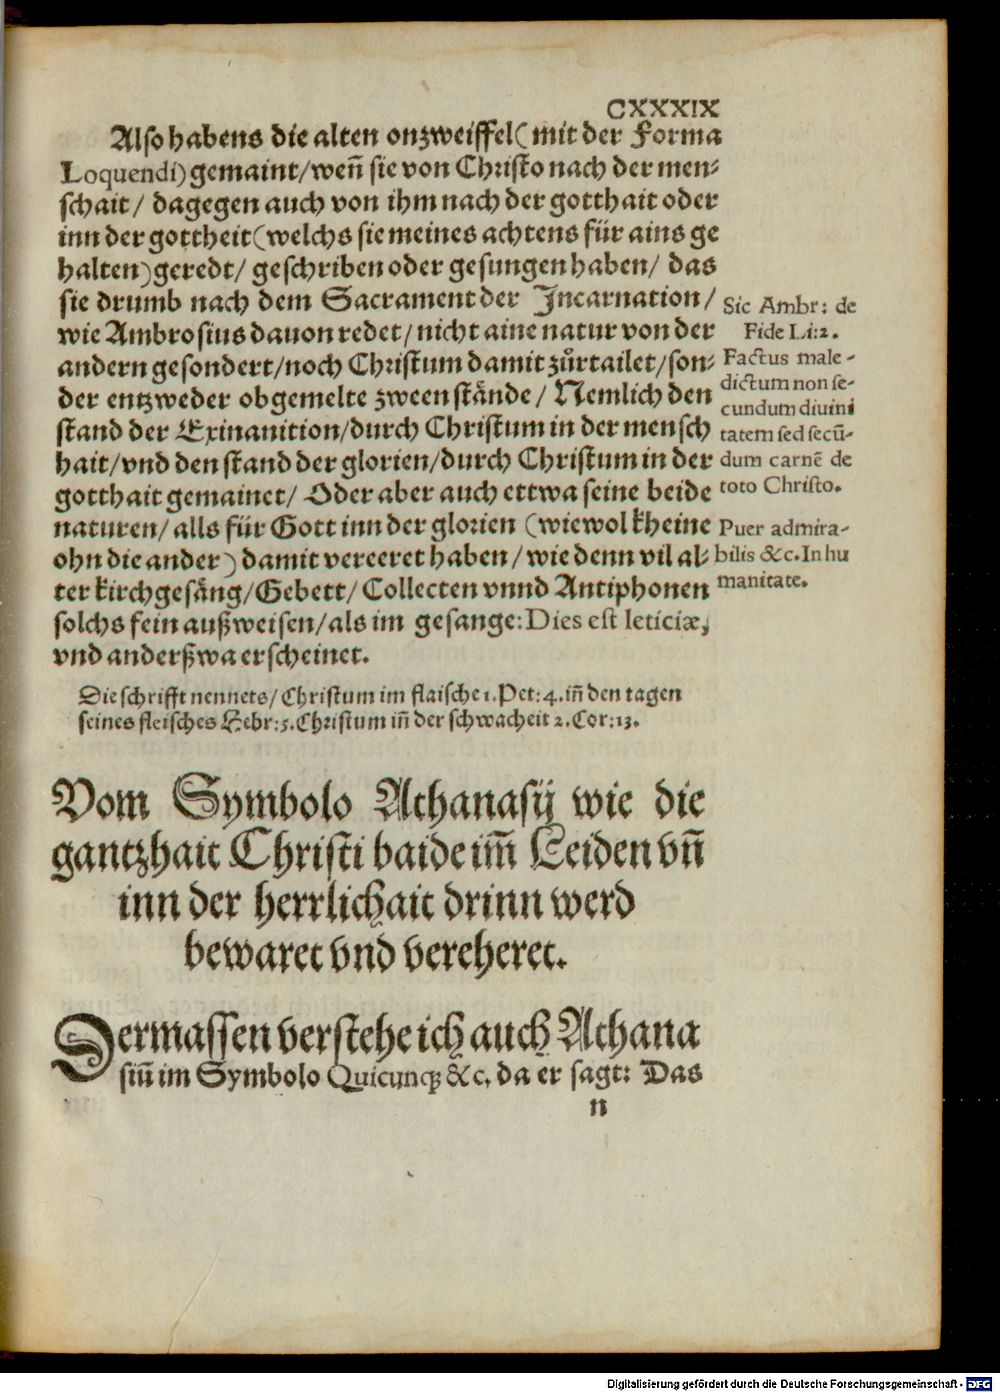 CXXXIX
Also habens die alten onzweiffel (mit der Forma
Loquendi) gemaint/ weñ sie von Christo nach der men⸗
schait/ dagegen auch von ihm nach der gotthait oder
inn der gottheit (welchs sie meines achtens für ains ge
halten) geredt/ geschriben oder gesungen haben/ das
sie drumb nach dem Sacrament der Incarnation/
wie Ambrosius dauon redet/ nicht aine natur von der
andern gesondert/ noch Christum damit zůrtailet/ son⸗
der entzweder obgemelte zween stände/ Nemlich den
stand der Exinanition/ durch Christum in der mensch
hait/ vnd den stand der glorien/ durch Christum in der
gotthait gemainet/ Oder aber auch ettwa seine beide
naturen/ alls für Gott inn der glorien (wiewol kheine
ohn die ander) damit vereeret haben/ wie denn vil al⸗
ter kirchgesäng/ Gebett/ Collecten vnnd Antiphonen
solchs fein außweisen/ als im gesange: Dies est leticiæ,
vnd anderßwa erscheinet.
Sic Ambr: de
Fide Li: 2.
Factus male-
dictum non se-
cundum diuini
tatem sed secũ-
dum carnẽ de
toto Christo.
Puer admira-
bilis &c. In hu
manitate.
Die schrifft nennets/ Christum im flaische 1. Pet: 4. iñ den tagen
seines fleisches Hebr: 5. Christum iñ der schwacheit 2. Cor: 13.
Vom Symbolo Athanasij wie die
gantzhait Christi baide im̃ Leiden vñ
inn der herrlichait drinn werd
bewaret vnd vereheret.
Dermassen verstehe ich auch Athana
siũ im Symbolo Quicunqꝫ &c, da er sagt: Das
n
Digitalisierung gefördert durch die Deutsche Forschungsgemeinschaft - DFG